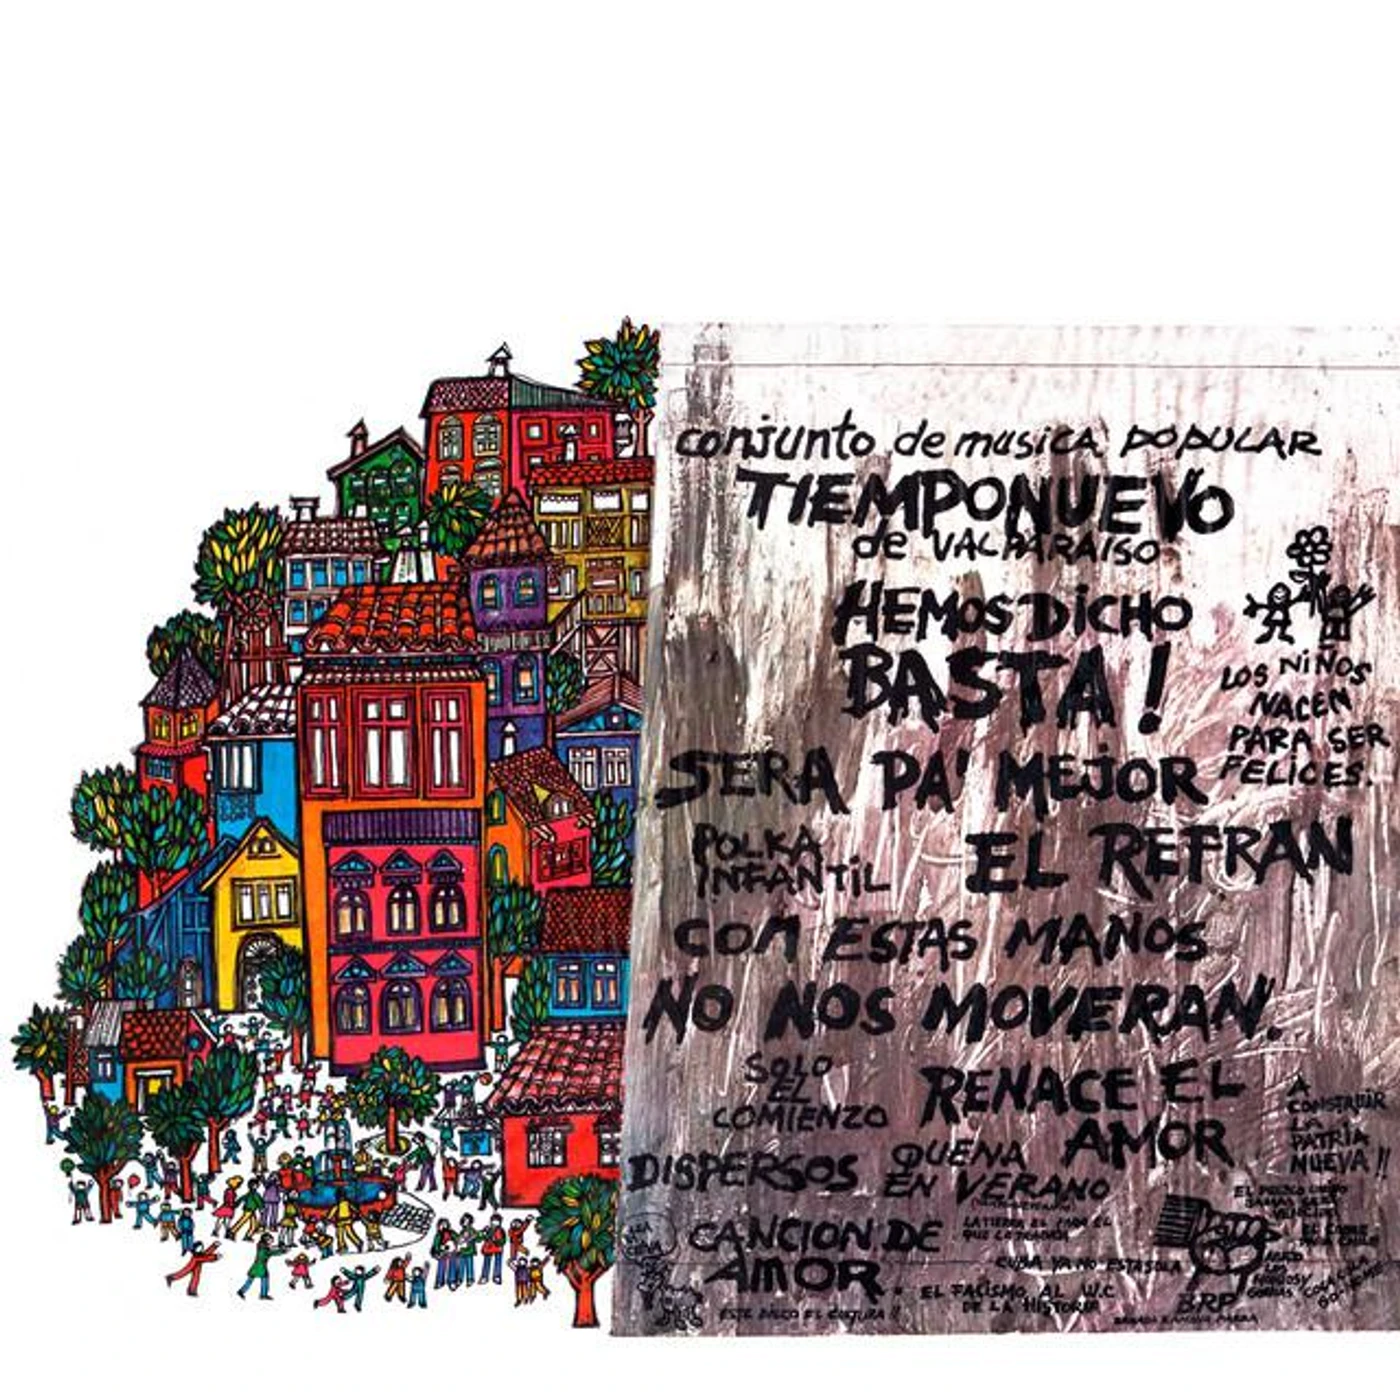 conjunto de musica POPULAR
TIEMPONUEVO
de VALPARAISO
HEMOS DICHO
BASTA!
LOS NIÑOS
NACEN
PARA SER
FELICES.
SERA PA' MEJOR
POLKA
INFANTIL
EL REFRAN
CON ESTAS MANOS
NO NOS MOVERAN.
SOLO
EL
COMIENZO
RENACE EL
AMOR
A
CONSTRUIR
LA
PATRIA
NUEVA!!
DISPERSOS
QUENA
EN VERANO
CANCION DE
AMOR
LA TIERRA ES PARA EL
QUE LA TRABAJA
CUBA YA NO ESTA SOLA
EL FACISMO AL W.C
DE LA HISTORIA
ESTE DISCO ES CULTURA!!
EL PUEBLO UNIDO
JAMAS SERA
VENCIDO
EL COBRE
PARA CHILE
BRP
BRIGADA RAMONA PARRA